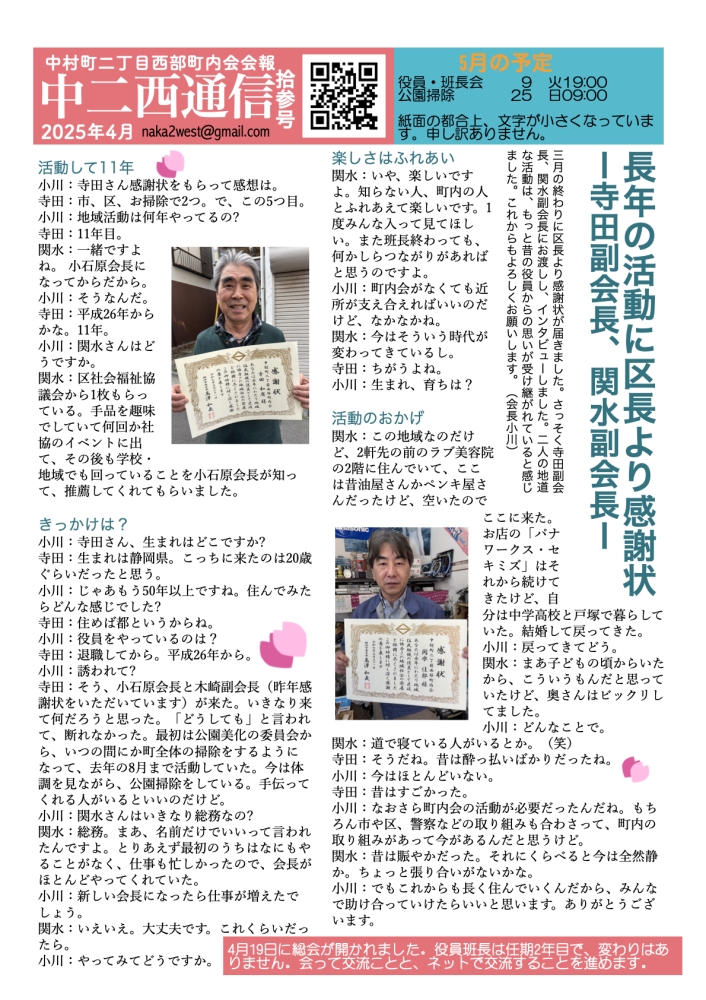 中村町二丁目西部町内会会報
中二西通信
拾参号
2025年4月
naka2west@gmail.com
5月の予定
役員・班長会 9 火19:00
公園掃除 25 日09:00
紙面の都合上、文字が小さくなっていま
す。申し訳ありません。
長年の活動に区長より感謝状
ー寺田副会長、関水副会長ー
三月の終わりに区長より感謝状が届きました。さっそく寺田副会
長、関水副会長にお渡しし、インタビューしました。二人の地道
な活動は、もっと昔の役員からの思いが受け継がれていると感じ
ました。これからもよろしくお願いします。（会長小川）
活動して11年
小川：寺田さん感謝状をもらって感想は。
寺田：市、区、お掃除で2つ。で、この5つ目。
小川：地域活動は何年やってるの？
寺田：11年目。
関水：一緒ですよ
ね。 小石原会長に
なってからだから。
小川：そうなんだ。
寺田：平成26年から
かな。11年。
小川：関水さんはど
うですか。
関水：区社会福祉協
議会から1枚もらっ
ている。手品を趣味
でしていて何回か社
協のイベントに出
て、その後も学校・
地域でも回っていることを小石原会長が知っ
て、推薦してくれてもらいました。
感謝状
きっかけは？
小川：寺田さん、生まれはどこですか？
寺田：生まれは静岡県。こっちに来たのは20歳
ぐらいだったと思う。
小川：じゃあもう50年以上ですね。住んでみた
らどんな感じでした？
寺田：住めば都というからね。
小川：役員をやっているのは？
寺田：退職してから。平成26年から。
小川：誘われて？
寺田：そう、小石原会長と木崎副会長（昨年感
謝状をいただいています）が来た。いきなり来
て何だろうと思った。「どうしても」と言われ
て、断れなかった。最初は公園美化の委員会か
ら、いつの間にか町全体の掃除をするように
なって、去年の8月まで活動していた。今は体
調を見ながら、公園掃除をしている。手伝って
くれる人がいるといいのだけど。
小川：関水さんはいきなり総務なの？
関水：総務。まあ、名前だけでいいって言われ
たんですよ。とりあえず最初のうちはなにもや
ることがなく、仕事も忙しかったので、会長が
ほとんどやってくれていた。
小川：新しい会長になったら仕事が増えたで
しょう。
関水：いえいえ。大丈夫です。これくらいだっ
たら。
小川：やってみてどうですか。
楽しさはふれあい
関水：いや、楽しいです
よ。知らない人、町内の人
とふれあえて楽しいです。1
度みんな入って見てほし
い。また班長終わっても、
何かしらつながりがあれば
と思うのですよ。
小川：町内会がなくても近
所が支え合えればいいのだ
けど、なかなかね。
関水：今はそういう時代が
変わってきているし。
寺田：ちがうよね。
小川：生まれ、育ちは？
活動のおかげ
関水：この地域なのだけ
ど、2軒先の前のラブ美容院
の2階に住んでいて、ここ
は昔油屋さんかペンキ屋さ
んだったけど、空いたので
ここに来た。
お店の「パナ
ワークス・セ
キミズ」はそ
れから続けて
きたけど、自
分は中学高校と戸塚で暮らして
いた。結婚して戻ってきた。
小川：戻ってきてどう。
関水：まあ子どもの頃からいた
から、こういうもんだと思って
いたけど、奥さんはビックリし
てました。
小川：どんなことで。
感謝状
関水：道で寝ている人がいるとか。（笑）
寺田：そうだね。昔は酔っ払いばかりだったね。
小川：今はほとんどいない。
寺田：昔はすごかった。
小川：なおさら町内会の活動が必要だったんだね。もち
ろん市や区、警察などの取り組みも合わさって、町内の
取り組みがあって今があるんだと思うけど。
関水：昔は賑やかだった。それにくらべると今は全然静
か。ちょっと張り合いがないかな。
小川：でもこれからも長く住んでいくんだから、みんな
で助け合っていけたらいいと思います。ありがとうござ
います。
4月19日に総会が開かれました。役員班長は任期2年目で、変わりはあ
りません。会って交流ことと、ネットで交流することを進めます。